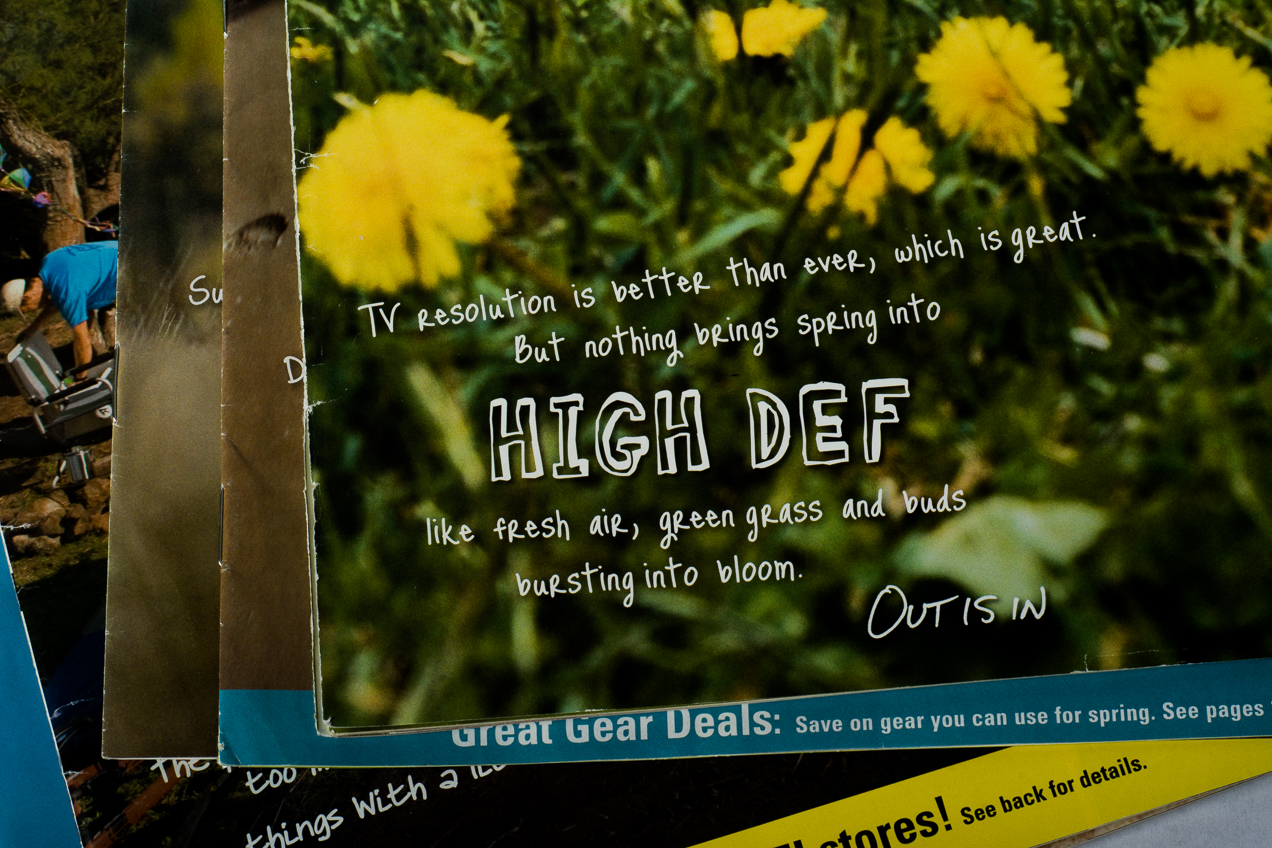 Su
D
TV resolution is better than ever, which is great.
But nothing brings spring into
HIGH DEF
like fresh air, green grass and buds
bursting into bloom.
OUT IS IN
Great Gear Deals: Save on gear you can use for spring. See pages
too
things With a
stores! See back for details.